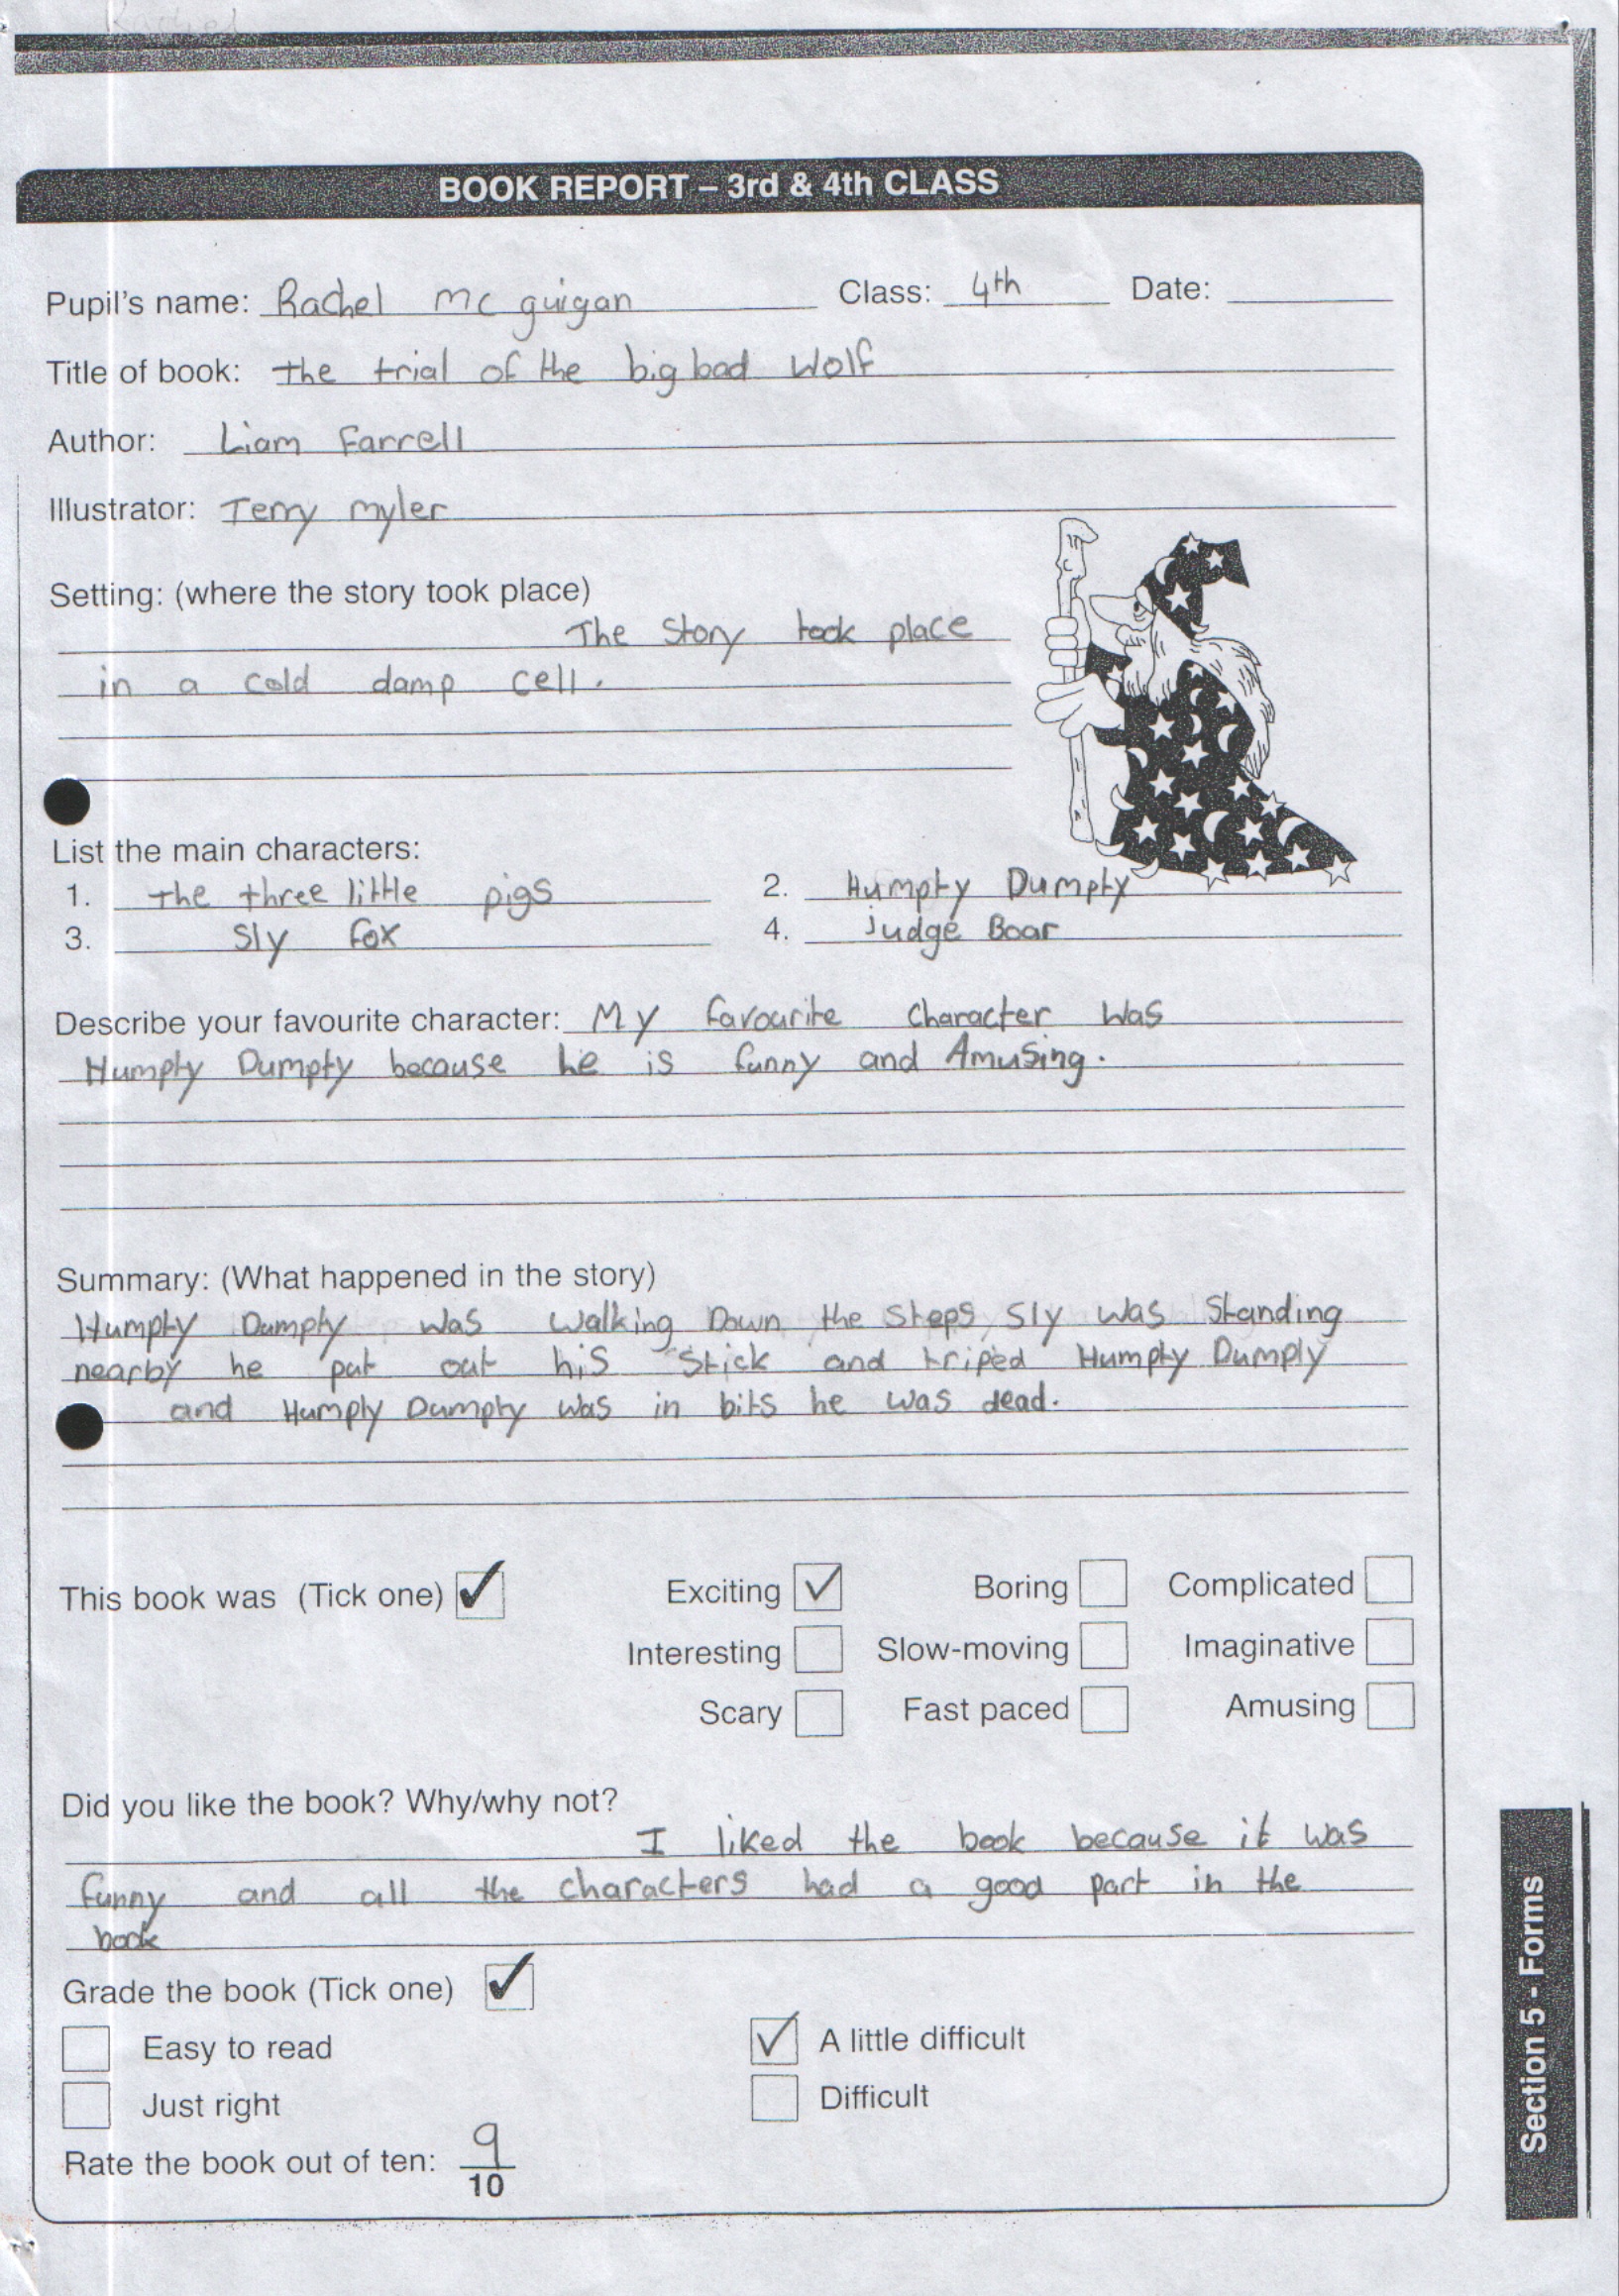 Rachel
BOOK REPORT – 3rd & 4th CLASS
Pupil's name: Rachel Mc guigan Class: 4th Date:
Title of book: the trial of the big bad Wolf
Author: Liam Farrell
Illustrator: Terry Myler
Setting: (where the story took place)
The Story took place
in a cold damp cell.
List the main characters:
1. the three little pigs 2. Humpty Dumpty
3. Sly Fox 4. Judge Boar
Describe your favourite character: My favourite character was
Humpty Dumpty because he is funny and Amusing.
Summary: (What happened in the story)
Humpty Dumpty was walking Down the Steps, Sly was Standing
nearby he put out his Stick and triped Humpty Dumpty
and Humpty Dumpty was in bits he was dead.
This book was (Tick one) ✓ Exciting ✓ Boring Complicated
Interesting Slow-moving Imaginative
Scary Fast paced Amusing
Did you like the book? Why/why not?
I liked the book because it was
funny and all the characters had a good part in the
book
Grade the book (Tick one) ✓
Easy to read ✓ A little difficult
Just right Difficult
Rate the book out of ten: 9
10
Section 5 - Forms